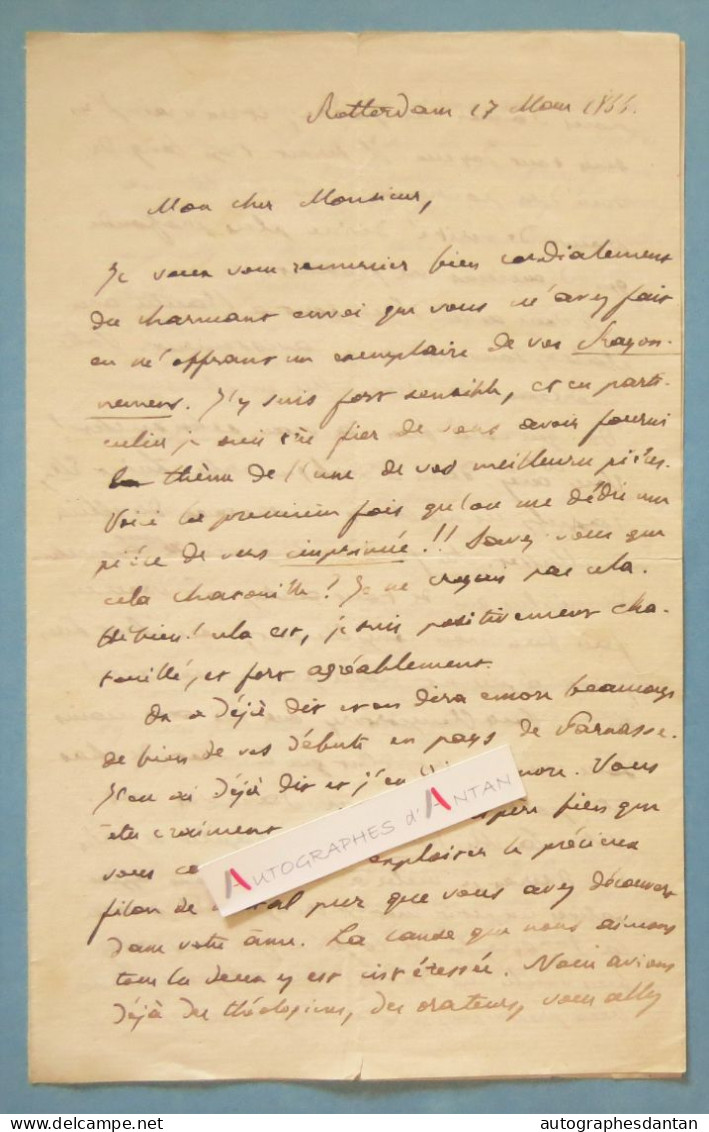 Rotterdam 17 Mars 1866.
Mon cher Monsieur,
Je veux vous remercier bien cordialement
du charmant envoi que vous m'avez fait
en m'offrant un exemplaire de vos Rayon-
nemens. J'y suis fort sensible, et en parti-
culier je suis très fier de vous avoir fourni
le thème de l'une de vos meilleures pièces.
Voici la première fois qu'on me dédie une
pièce de vers imprimée!! Savez-vous que
cela chatouille! Je ne croyais pas cela.
Eh bien! cela est, je suis positivement cha-
touillé, et fort agréablement.
On a déjà dit et on dira encore beaucoup
de bien de vos débuts en pays de Parnasse.
J'en ai déjà dit et j'en encore. Vous
êtes vraiment espère bien que
vous exploiter le précieux
filon de métal pur que vous avez découvert
dans votre âme. La cause que nous aimons
tous les deux y est intéressée. Nous avions
déjà des théologiens, des orateurs, vous allez
AUTOGRAPHES d'ANTAN
delcampe.net
autographesdantan